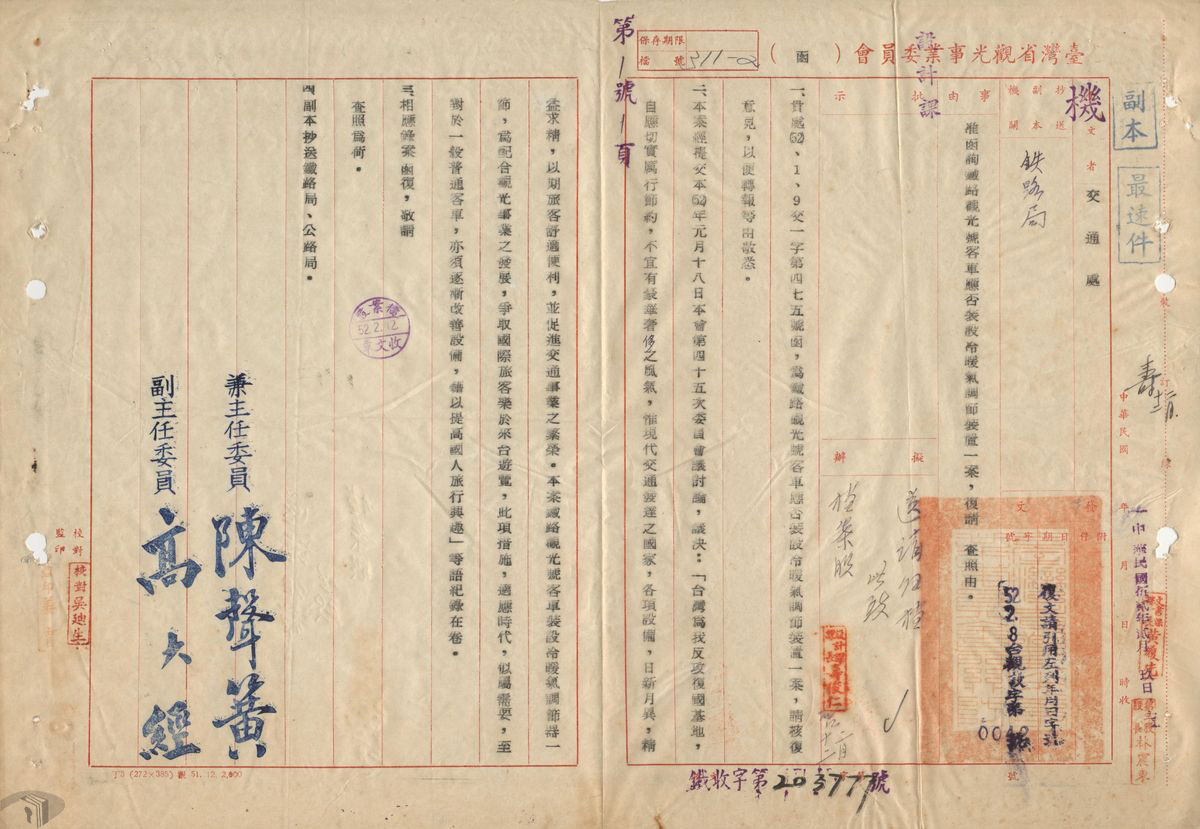 副本
最速件
臺灣省觀光事業委員會（函）
保存期限
檔號
311-2
設計課
第1號1頁
機
抄送
副本
機關
鉄路局
受文者
交通處
事由
准函詢鐵路觀光號客車應否裝設冷暖氣調節裝置一案，復請　查照由。
批示
擬辦
檔案股
中華民國　年　月　日　時收
中華民國伍貳年貳月玖日
附件
日期
字號
復文請引用左列年月日字號
52.2.8台觀設字第
號
一、貴處52、1、9交一字第四七五號函，為鐵路觀光號客車應否裝設冷暖氣調節裝置一案，請核復
意見，以便轉報等由敬悉。
二、本案經提交本52年元月十八日本會第四十五次委員會議討論，議決：「台灣為我反攻復國基地，
自應切實厲行節約，不宜有豪華奢侈之風氣，惟現代交通發達之國家，各項設備，日新月異，精
益求精，以期旅客舒適便利，並促進交通事業之繁榮。本案鐵路觀光號客車裝設冷暖氣調節器一
節，為配合觀光事業之發展，爭取國際旅客樂於來台遊覽，此項措施，適應時代，似屬需要，至
對於一般普通客車，亦須逐漸改善設備，藉以提高國人旅行興趣」等語紀錄在卷。
三、相應錄案函復，敬請
查照為荷。
四、副本抄送鐵路局、公路局。
52.2.12.
收文章
兼主任委員　陳聲簧
副主任委員　高大經
校對
監印
校對吳廸生
鐵收字第20377號
丁3 (272×385) 觀 51. 12. 2,000
裝
訂
線